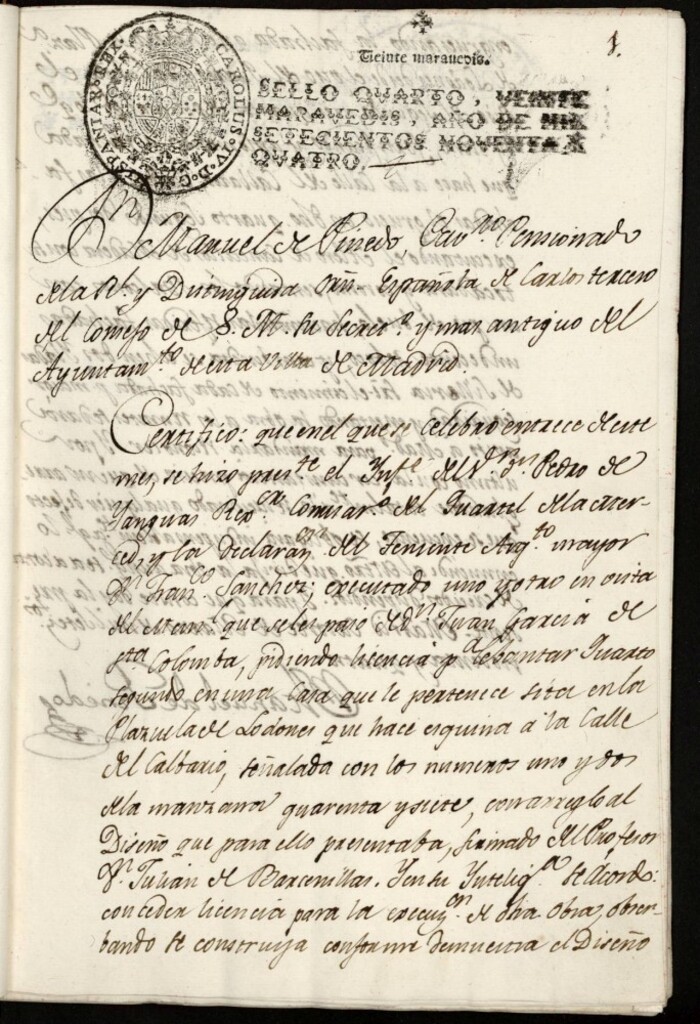 1.
Veinte maravedis.
SELLO QVARTO, VEINTE
MARAVEDIS, AÑO DE MIL
SETECIENTOS NOVENTA Y
QVATRO.
CAROLUS·IV·D·G· HISPANIAR·REX
Dn Manuel de Pinedo Cavro. Pensionado
dela Rl. y Distinguida Orñ. Española de Carlos tercero
del Consejo de S. M. su Secreto. y mas antiguo del
Ayuntamto. de esta Villa de Madrid.
Certifico: que en el que se celebro en trece de este
mes, se hizo preste. el Infe. del Sr. Dn. Pedro de
Yanguas Rexor. Comisaro. del Quartel dela Mer-
ced, y la declaraon. del Teniente Arqto. mayor
Dn. Franco. Sanchez; executado uno y otro en vista
del Meml. que se les paso de Dn. Juan Garcia de
Sta Colomba, pidiendo licencia pa. lebantar Quarto
segundo en una Casa que le pertenece sita en la
Plazuela de Lodones que hace esquina á la Calle
del Calbario, señalada con los numeros uno y dos
dela manzana quarenta y siete, con arreglo al
Diseño que para ello presentaba, firmado del Profesor
Dn. Julian de Barcenillas. Y en su Inteliga. se Acordo:
conceder licencia para la execuon. de dha. Obra, obser-
bando se construya conforme demuestra el Diseño